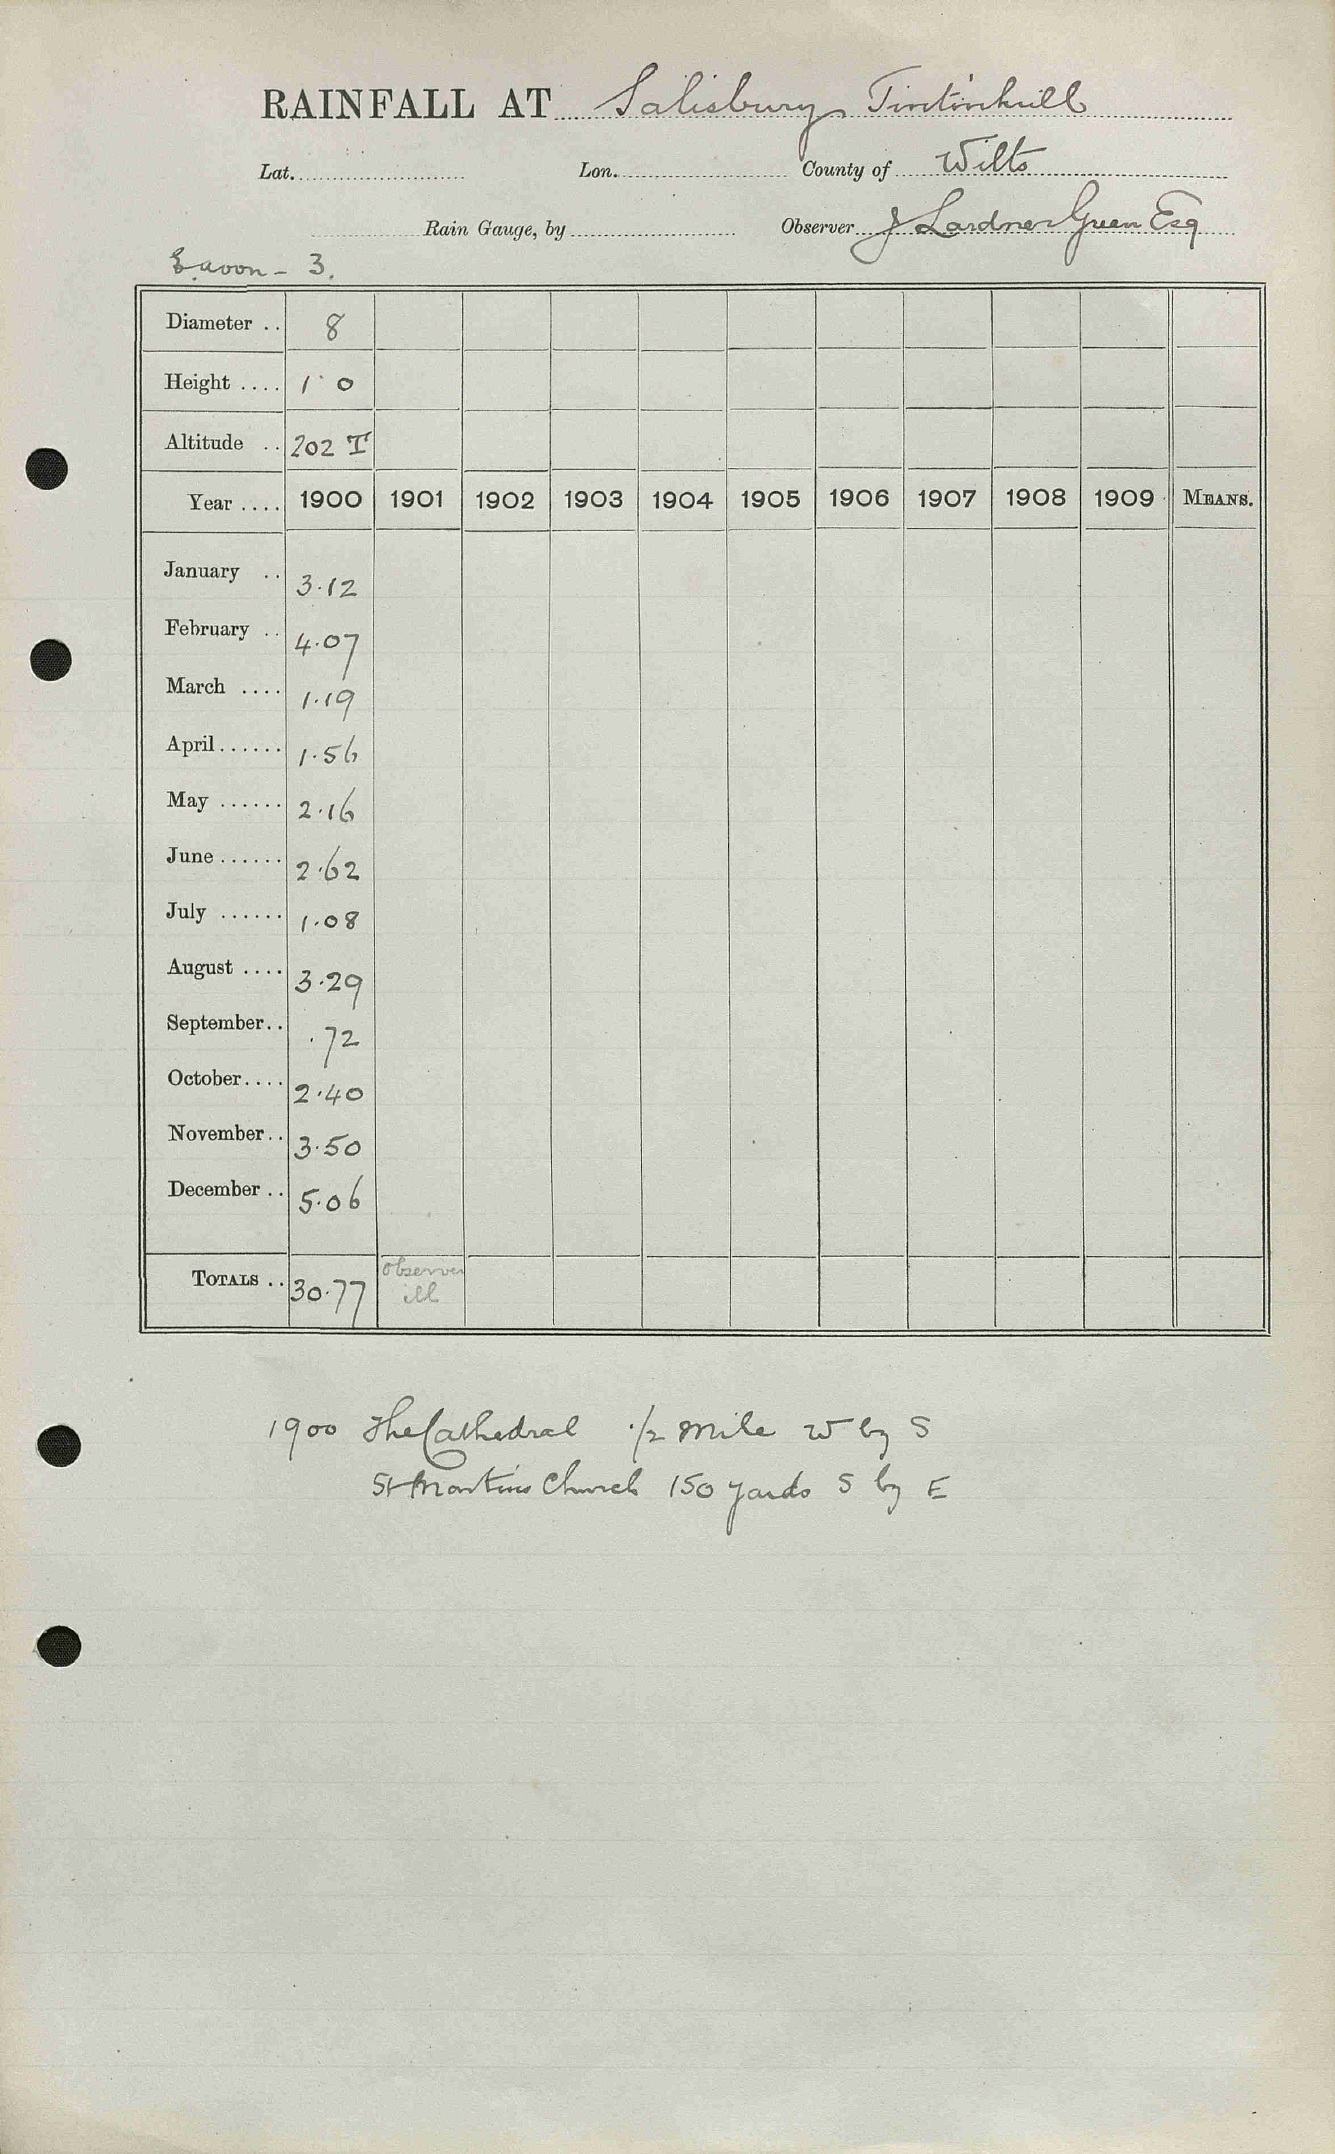 RAINFALL AT Salisbury Tintinhull
Lat. Lon. County of Wilts
Rain Gauge, by Observer J Lardner Green Esq
E. Avon - 3.
Diameter .. 8
Height .... 1 0
Altitude .. 202 T
Year .... 1900 1901 1902 1903 1904 1905 1906 1907 1908 1909 MEANS.
January .. 3.12
February .. 4.07
March .... 1.19
April...... 1.56
May ...... 2.16
June...... 2.62
July ...... 1.08
August .... 3.29
September.. .72
October.... 2.40
November.. 3.50
December .. 5.06
TOTALS .. 30.77 observer ill
1900 The Cathedral 1/2 Mile W by S
St Martins Church 150 yards S by E